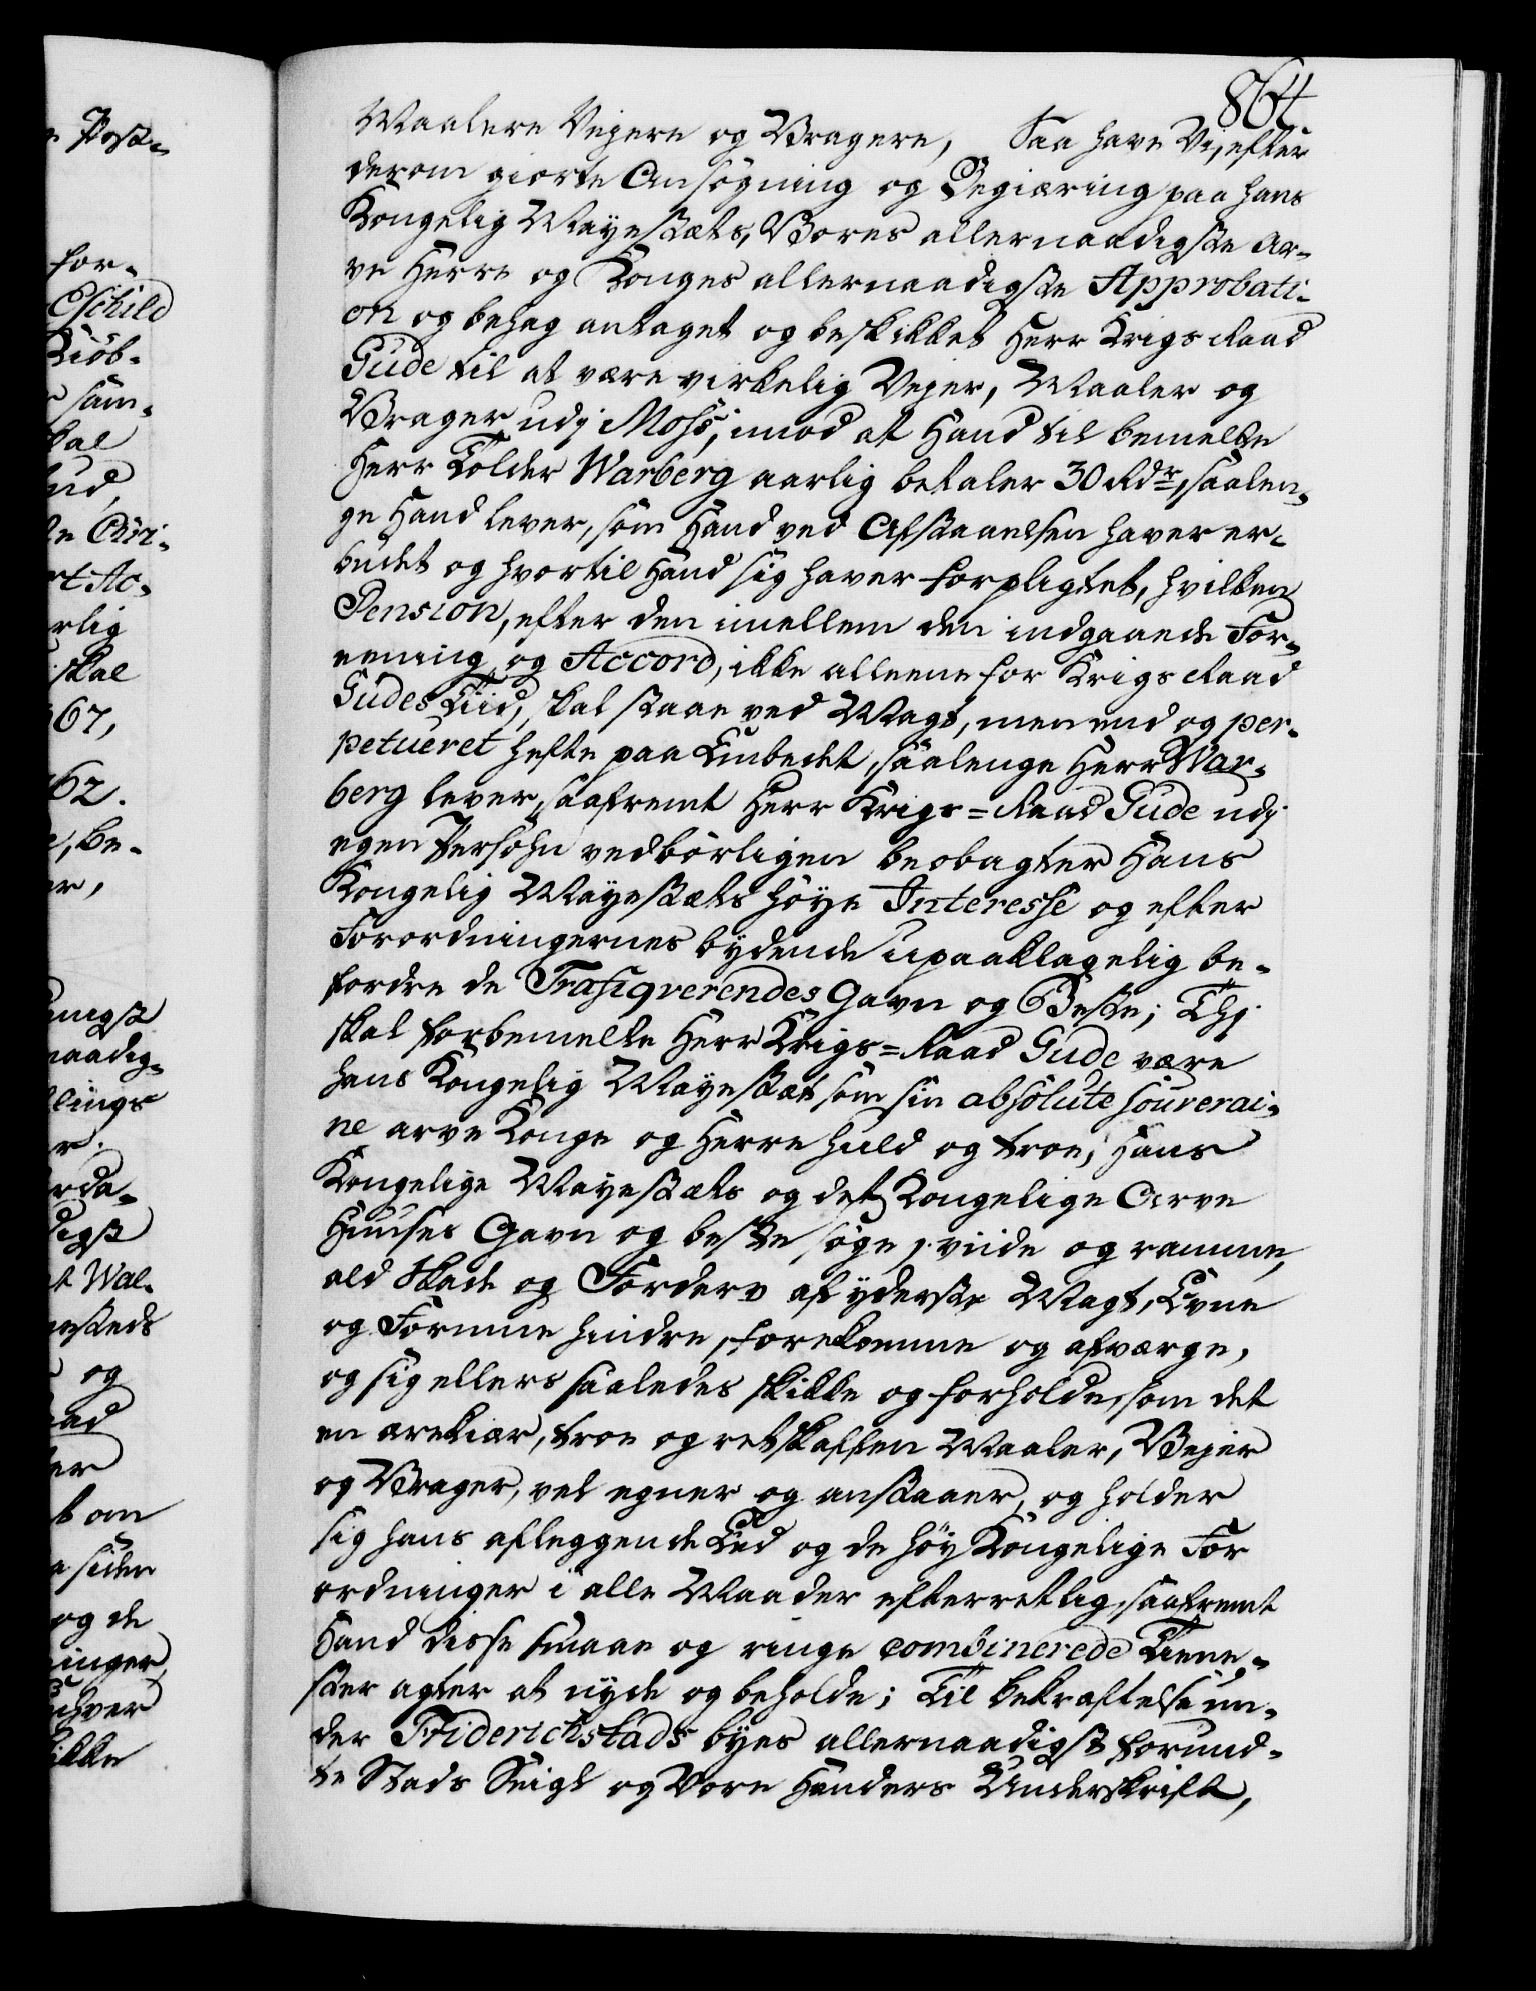 864
Maalere Vejere og Vragere, Saa have Vi, efter
derom giorte Ansøgning og Begiæring paa Hans
Kongelig Mayestæts, Vores allernaadigste Ar-
ve Herre og Konges allernaadigste Approbati-
on og behag antaget og beskikket Herr Krigs Raad
Gude til at være virkelig Vejer, Maaler og
Vrager udj Moss, imod at Hand til bemelte
Herr Tolder Warberg aarlig betaler 30 Rdr, saalen-
ge Hand lever, som Hand ved Afstaaelsen haver er-
budet og hvortil Hand sig haver forpligtet, hvilken
Pension, efter den imellem den indgaaede For-
eening og Accord, ikke alleene for Krigs Raad
Gudes Tiid, skal staae ved Magt, men end og per-
petueret hefte paa Embedet, saalenge Herr War-
berg lever, saafremt Herr Krigs=Raad Gude udj
egen Persohn vedbørligen beobagter Hans
Kongelig Mayestæts høye Interesse og efter
Forordningernes bydende upaaklagelig be-
fordre de Trafiqverendes Gavn og Beste; Thj
skal forbemelte Herr Krigs=Raad Gude være
Hans Kongelig Mayestæt som sin absolute souverai-
ne arve Konge og Herre huld og troe, Hans
Kongelige Mayestæts og det Kongelige Arve
Huuses Gavn og beste, søge, viide og ramme,
ald Skade og Forderv af yderste Magt, Evne
og Formue hindre, forekomme og afværge,
og sig ellers saaledes skikke og forholde, som det
en ærekiær, troe og retskaffen Maaler, Vejer
og Vrager, vel egner og anstaaer, og holder
sig hans afleggende Eed og de høy Kongelige For
ordninger i alle Maader efterretlig, saafremt
Hand disse smaae og ringe combinerede Tiene-
ster agter at nyde og beholde; Til bekræftelse un-
der Friderichstads byes allernaadigst forund-
te Stads Seigl og Vore Hænders Underskrift,